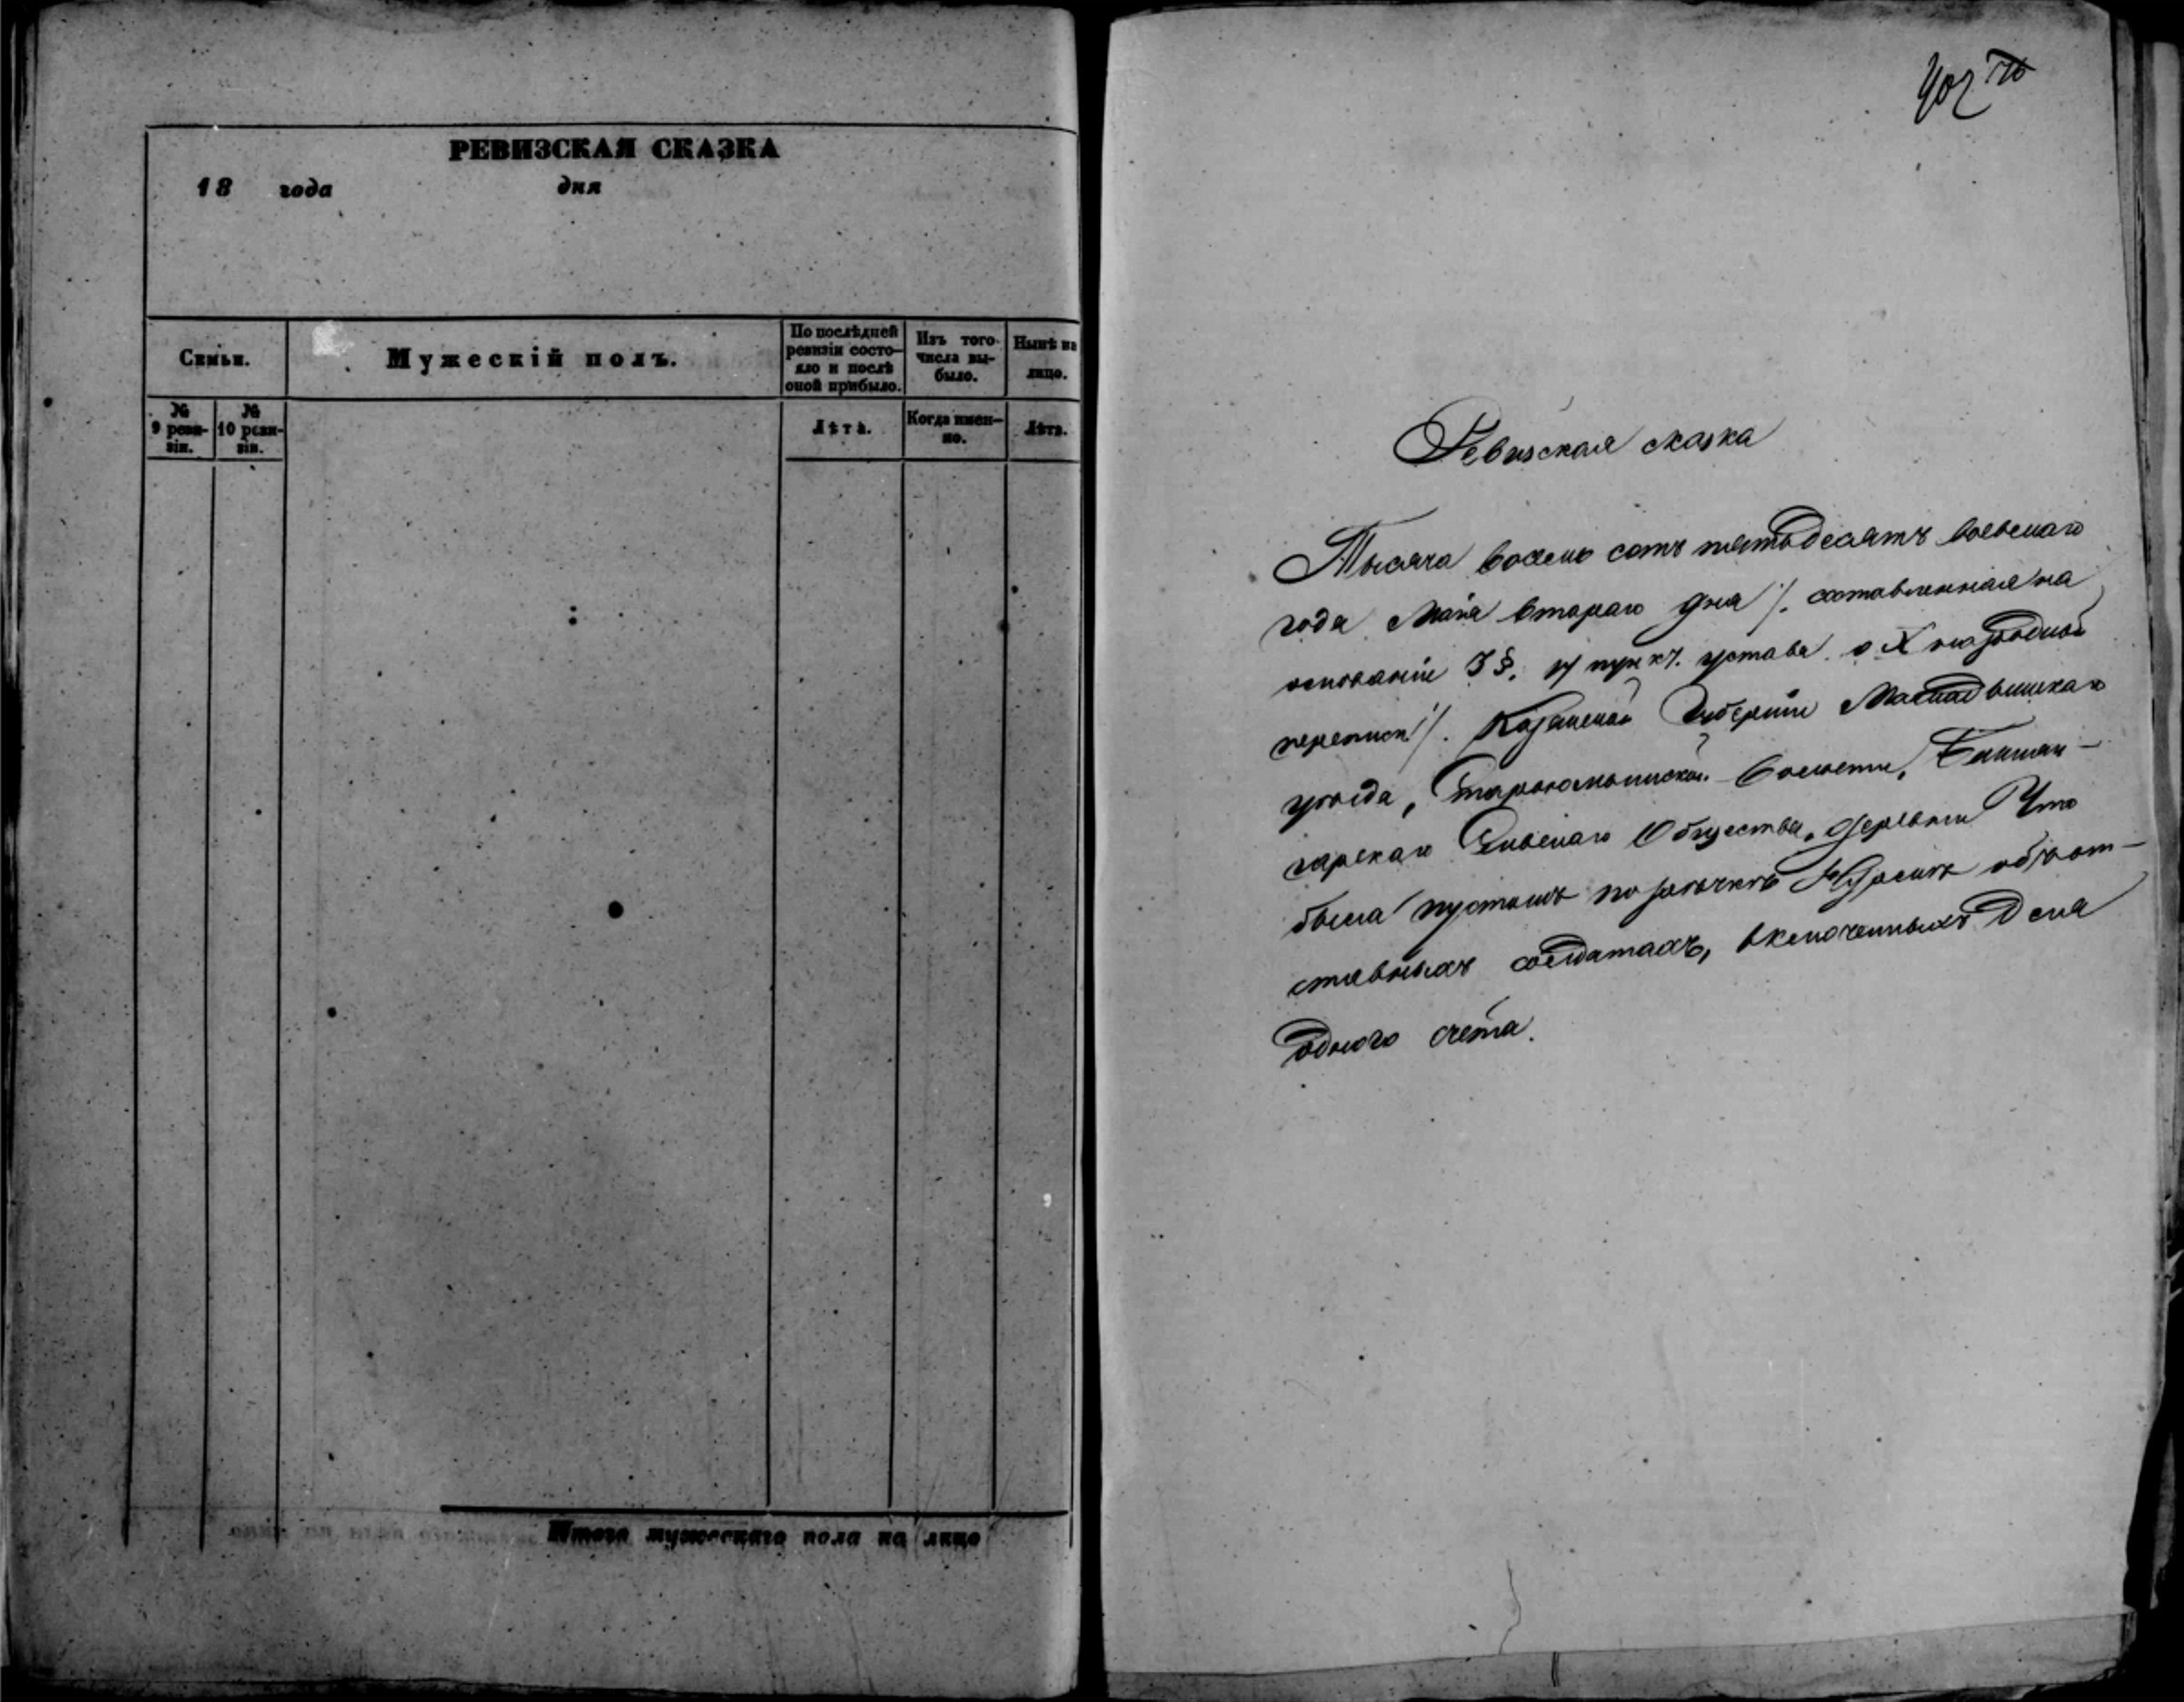 РЕВИЗСКАЯ СКАЗКА
18 года дня
Семьи.
Мужескій полъ.
По послѣдней ревизіи состо-
яло и послѣ оной прибыло.
Изъ того числа вы-
было.
Нынѣ на лицо.
№ 9 реви-
зіи.
№ 10 реви-
зіи.
Лѣта.
Когда имен-
но.
Лѣта.
Итого мужескаго пола на лицо
402
Ревизская сказка
Тысяча восемь сотъ пятьдесятъ восьмаго
года Маія втораго дня /. составленная на
основаніи 3 §. пункт. устава о X народной
переписи /. Казанской Губерніи Мамадышскаго
уѣзда, Староюмьинской волости,
Сельскаго Общества, деревни Что
была пустошь по рѣчкѣ объ от-
ставныхъ солдатахъ, включенныхъ для
одного счета.